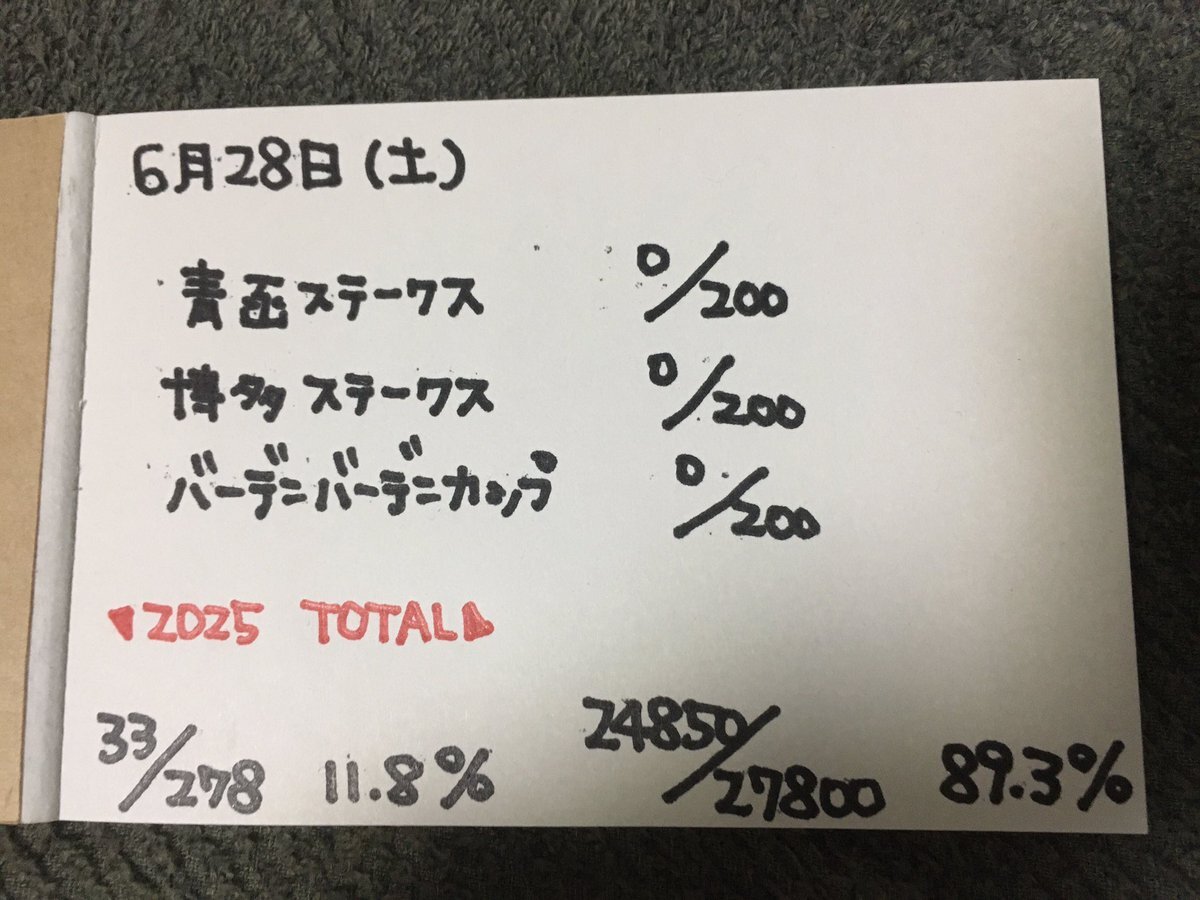 6月28日(土)
青函ステークス 0/200
博多ステークス 0/200
バーデンバーデンカップ 0/200
2025 TOTAL
33/278 11.8% 24850/27800 89.3%